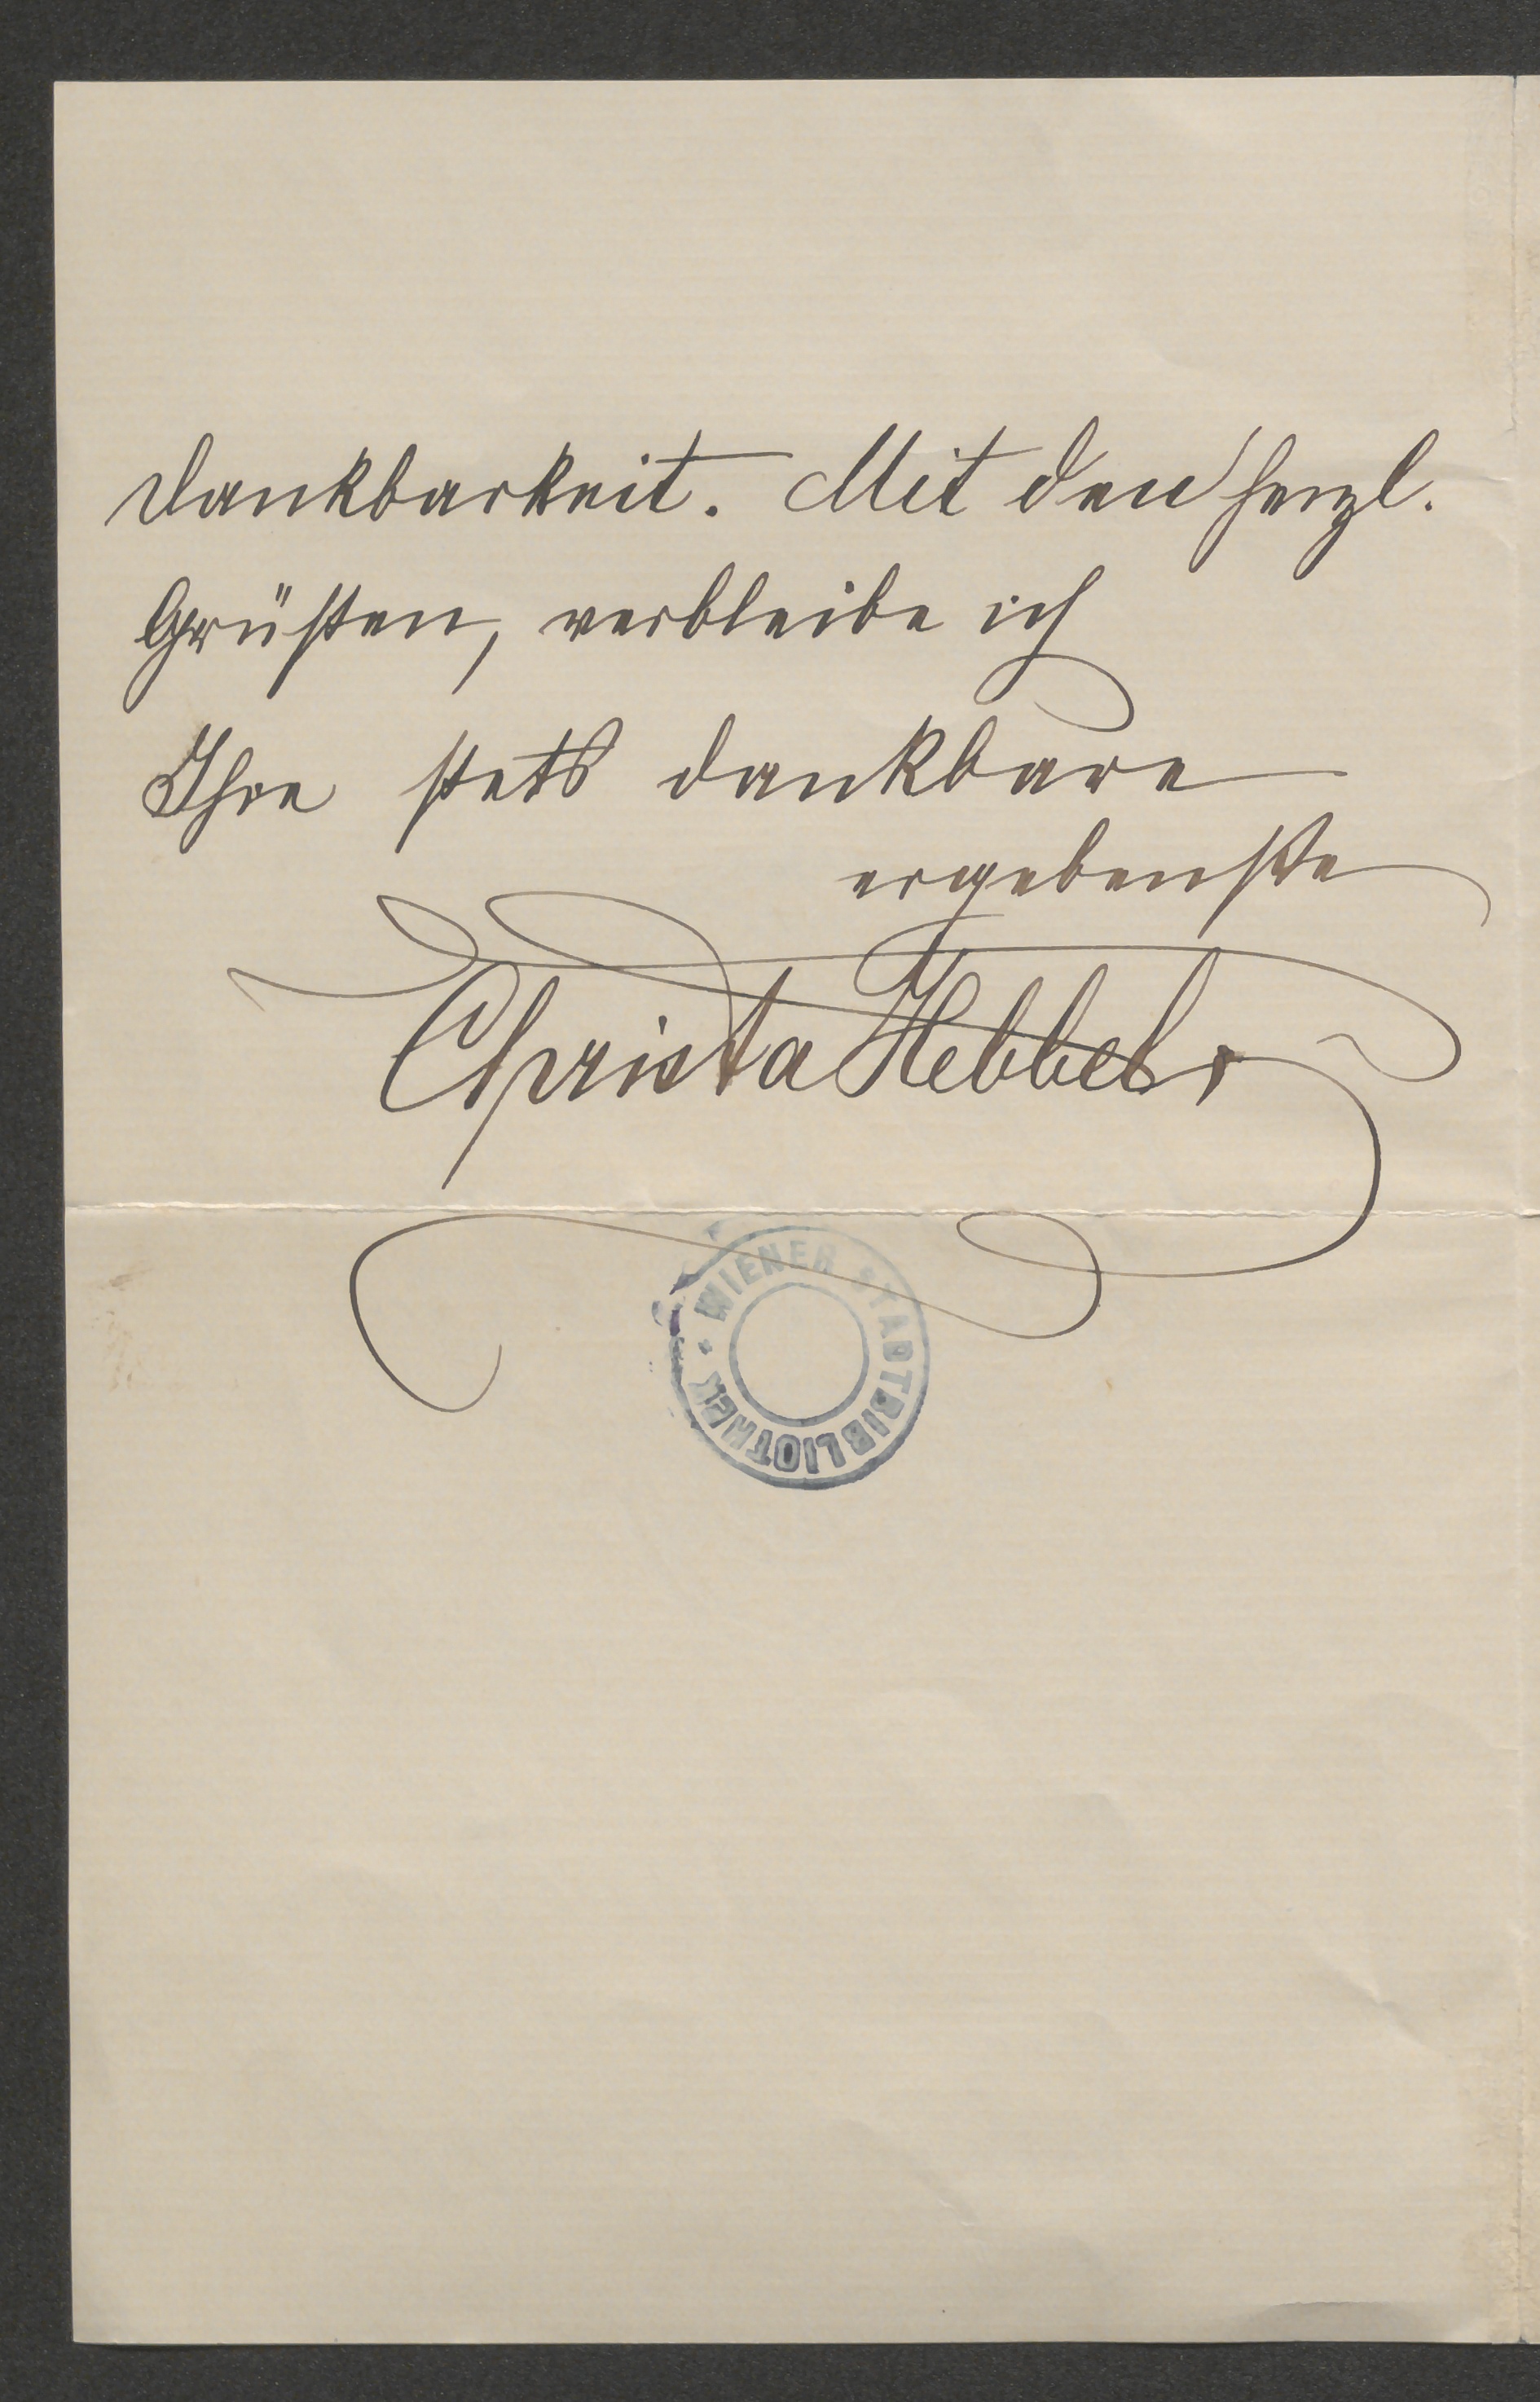 Dankbarkeit. Mit den herzl.
Grüßen, verbleibe ich
Ihre stets dankbare
ergebenste
Christa Hebbel.
WIENER STADTBIBLIOTHEK